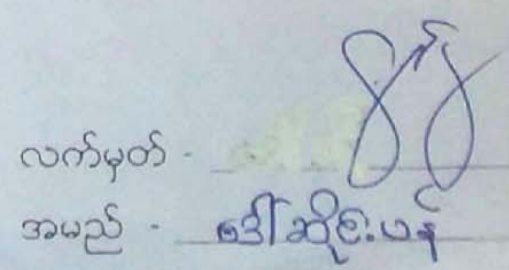 လက်မှတ် -
အမည် - ဒေါ်ဆိုင်းယန်